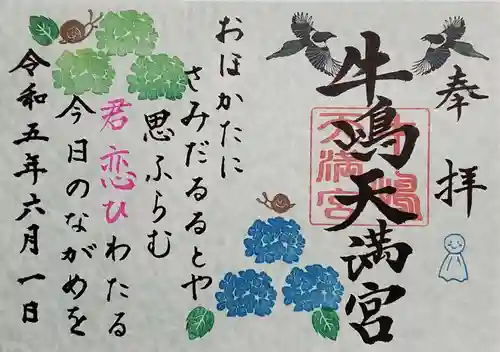 奉拝
牛嶋天満宮
牛嶋天満宮
おほかたに
さみだるるとや
思ふらむ
君恋ひわたる
今日のながめを
令和五年六月一日